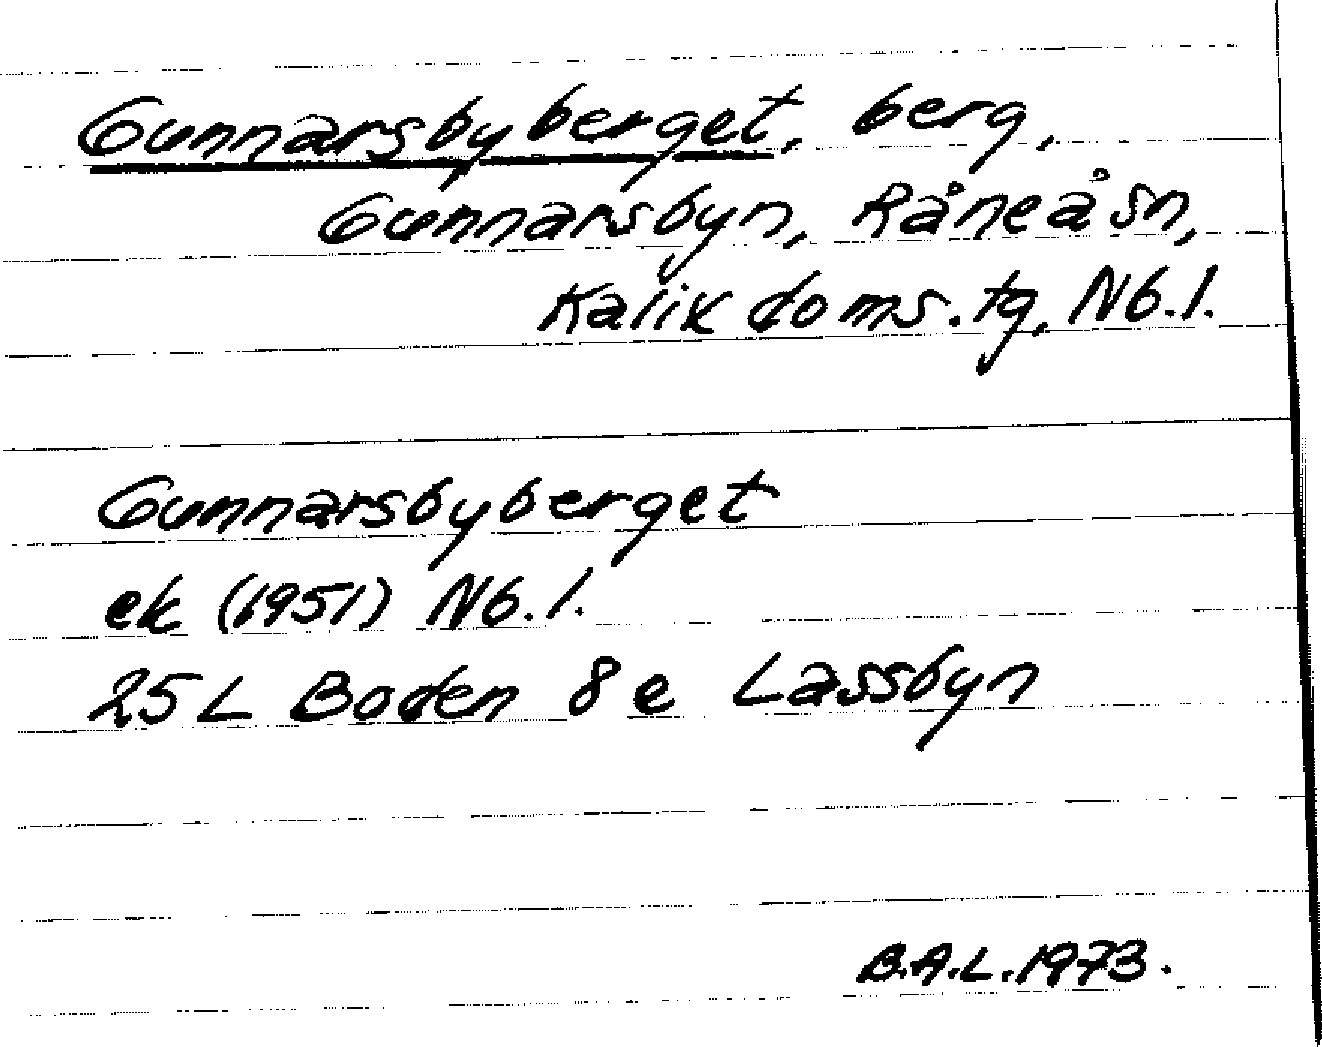 Gunnarsbyberget, berg,
Gunnarsbyn, Råneå sn,
Kalix doms.tg, Nb.l.
Gunnarsbyberget
ek (1951) Nb.l.
25 L Boden 8 e Lassbyn
B.A.L. 1973.